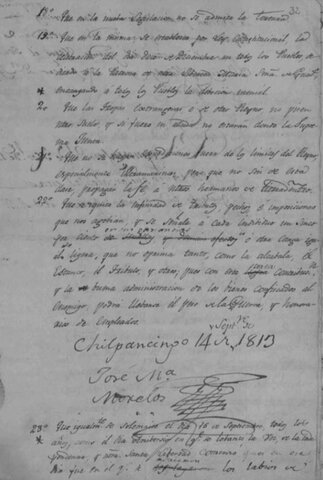 32
18º Que en la nueva Legislacion no se admita la Tortura
19º Que en la misma se establezca por Ley Constitucional la
celebracion del dia doce de Diciembre en todos los Pueblos, de-
dicado a la Patrona de nra Libertad Maria Sma de Guad.
encargando a todos los Pueblos la devocion mensual.
20 Que las tropas extrangeras o de otro Reyno no pisen
ntro suelo, y si fuere en ayuda no estaran donde la Supre-
ma Junta.
21º Que no se hagan expediciones fuera de los limites del Reyno,
especialmente Ultramarinas pero que no son de esta
clase, propagar la fé a ntros hermanos de
22º Que se quite la infinidad de tributos, pechos e imposiciones
que nos agobian, y se señale a cada individuo un cinco
por ciento o otra carga igual
ligera, que no oprima tanto, como la alcabala, el
Estanco, el Tributo, y otros, pues con esta corta contribuⁿ
y la buena administracion de los bienes confiscados al
Enemigo, podra llevarse el peso de la Guerra, y honora-
rios de Empleados.
Chilpancingo 14 de Sepᵗᵉ de 1813
Jose Mª
Morelos
23º Que igualmᵗᵉ se solemnice el dia 16 de Septiembre todos los
años, como el dia Aniversario en qᵉ se levanto la voz de la Inde-
pendencia, y nra Santa Libertad Comenzo, pues en ese
dia fue en el qᵉ se los labios de